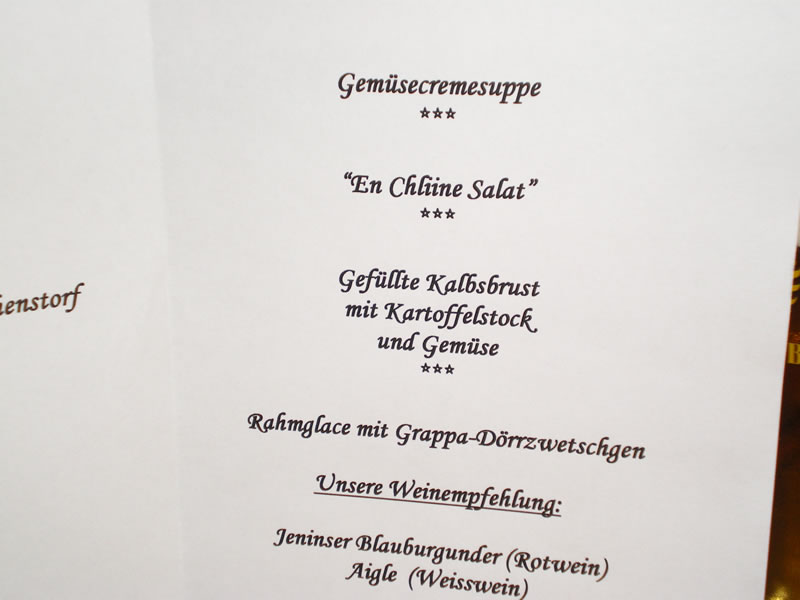 Gemüsecremesuppe
***
"En Chliine Salat"
***
Gefüllte Kalbsbrust
mit Kartoffelstock
und Gemüse
***
Rahmglace mit Grappa-Dörrzwetschgen
Unsere Weinempfehlung:
Jeninser Blauburgunder (Rotwein)
Aigle (Weisswein)